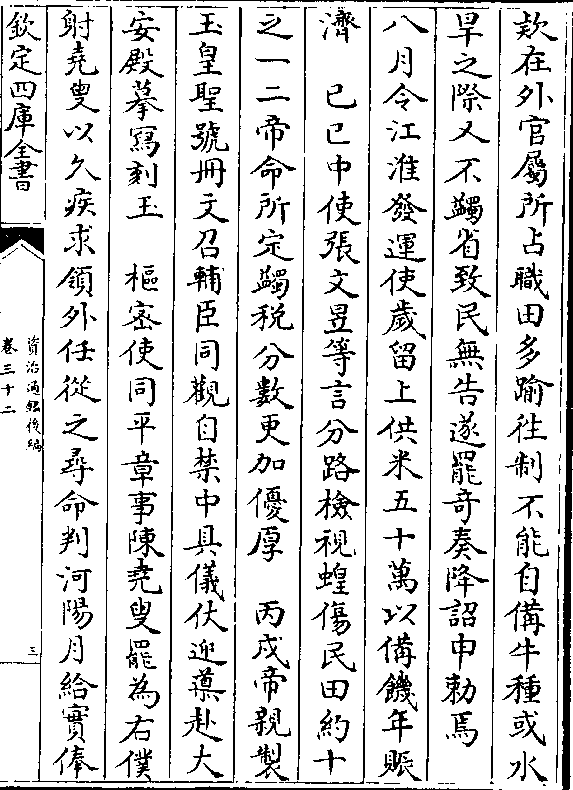 欵在外官屬所占職田多踰徃制不能自備牛種或水
旱之際又不蠲省致民無告遂罷竒奏降詔申勅焉
八月令江淮發運使歲留上供米五十萬以備饑年賑
濟　己巳中使張文昱等言分路檢視蝗傷民田約十
之一二帝命所定蠲税分數更加優厚　丙戌帝親製
玉皇聖號冊文召輔臣同觀自禁中具儀仗迎導赴大
安殿摹寫刻玉　樞宻使同平章事陳堯叟罷為右僕
射堯叟以久疾求領外任從之尋命判河陽月給實俸
欽定四庫全書
資治通鑑後編
卷三十二
三